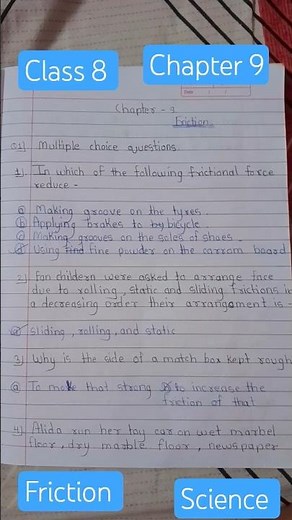 Class 8
Chapter 9
Date
Chapter - 9
Friction
Q1) Multiple choice questions.
1) In which of the following frictional force
reduce -
a) Making groove on the tyres.
b) Applying brakes to bicycle.
c) Making grooves on the soles of shoes.
d) Using fine powder on the carrom board
2) Fan childern were asked to arrange face
due to rolling, static and sliding frictions in
a decreasing order their arrangement is -
a) sliding, rolling, and static
3) Why is the side of a match box kept rough
a) To make that strong to increase the
friction of that
4) Alida run her toy car on wet marbel
floor, dry marble floor, newspaper
Friction
Science